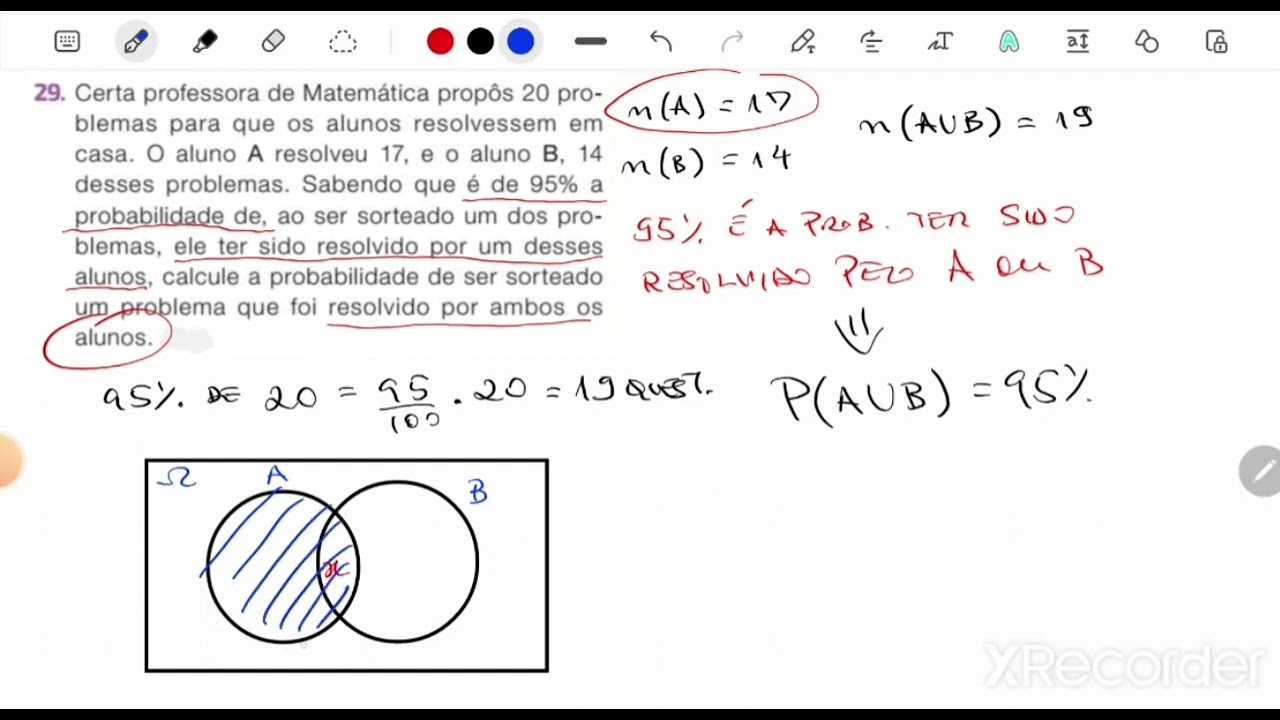 29. Certa professora de Matemática propôs 20 pro-
blemas para que os alunos resolvessem em
casa. O aluno A resolveu 17, e o aluno B, 14
desses problemas. Sabendo que é de 95% a
probabilidade de, ao ser sorteado um dos pro-
blemas, ele ter sido resolvido por um desses
alunos, calcule a probabilidade de ser sorteado
um problema que foi resolvido por ambos os
alunos.
n(A) = 17
n(B) = 14
n(A∪B) = 19
95% É A PROB. TER SIDO
RESOLVIDO PELO A OU B
P(A∪B) = 95%
95% DE 20 = 95/100 . 20 = 19 QUEST.
Ω A B
x
XRecorder